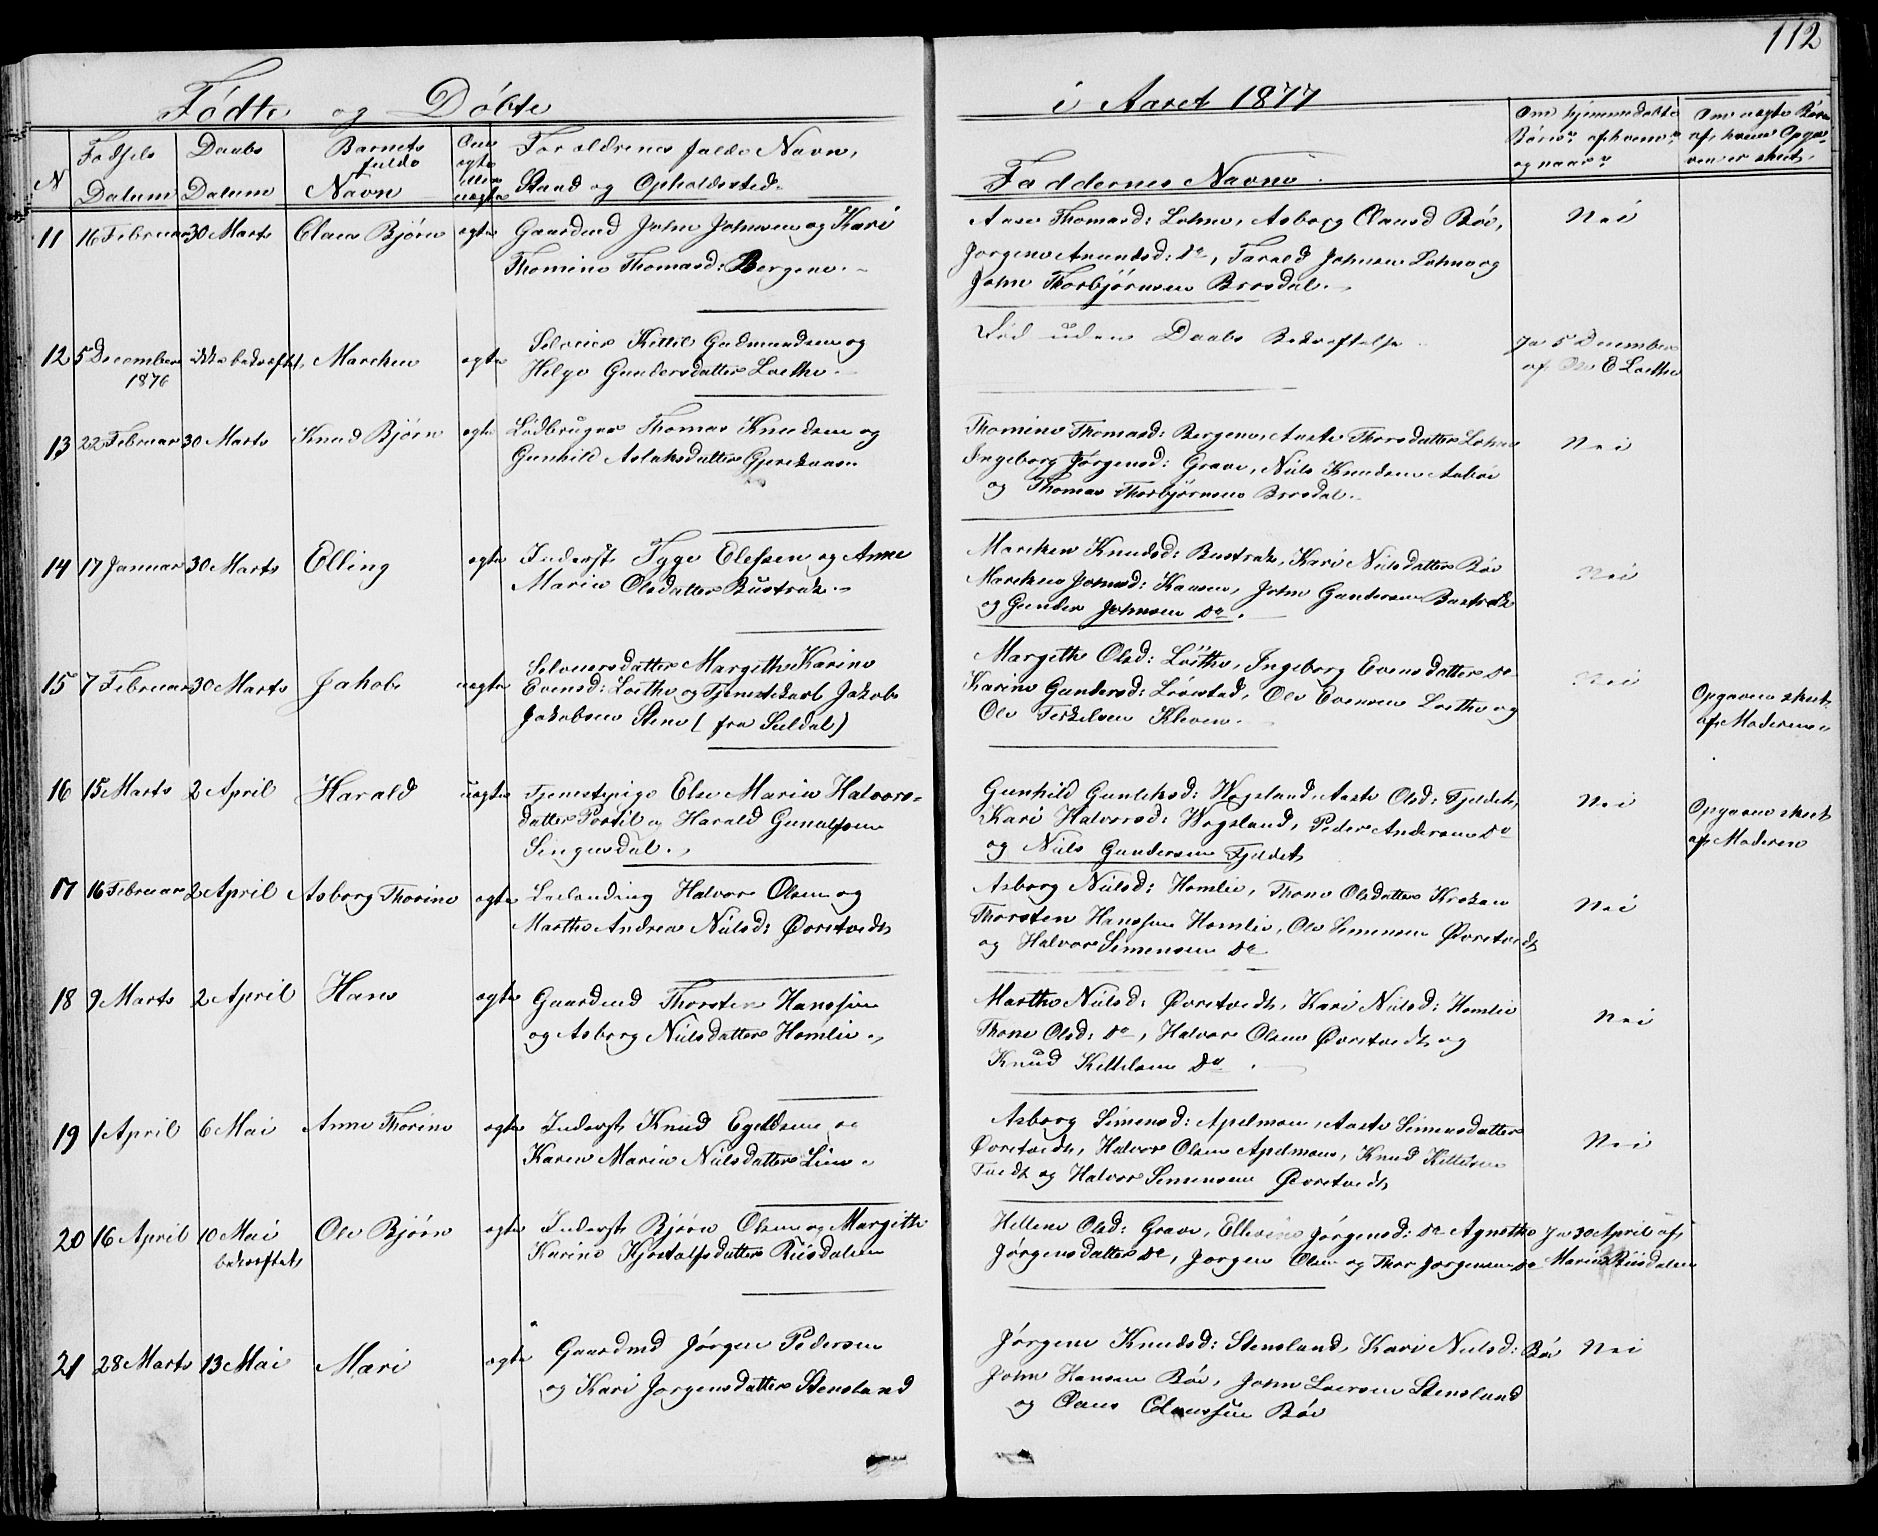 112
Fødte og Døbte
i Aaret 1877
N
Fødsels Datum
Daabs Datum
Barnets fulde Navn
Om ægte eller uægte
Forældrenes fulde Navn,
Stand og Opholdssted.
Faddernes Navne.
Om hjemmedøbte
Børn? af hvem?
og naar?
Om uægte Børn
af hvem Opga-
ven er skeet.
11 16 Februar 30 Marts Claus Bjørn ægte
Gaardmd John Johnsen og Kari
Thomine Thomasd: Bergene.
Aase Thomasd: Lohne, Asborg Clausd Bøe,
Jørgene Anundsd: Do, Tarald Johnsen Lohne og
John Thorbjørnsen Brosdal.
Nei
12 5 December 1876 ikke bekræftet, Marchen ægte
Selveier Kittil Gudmundsen og
Helge Gundersdatter Loethe.
Død uden Daabs Bekræftelse
Ja 5 December
af Ole E Loethe
13 22 Februar 30 Marts Knud Bjørn ægte
Lodbruger Thomas Knudsen og
Gunhild Aslaksdatter
Thomine Thomasd: Bergene, Aaste Thorsdatter Lohne
Ingeborg Jørgensd: Grave, Niels Knudsen Aabøe
og Thomas Thorbjørnsen Brosdal.
Nei
14 17 Januar 30 Marts Elling ægte
Inderst Tyge Elefsen og Anne
Marie Olsdatter Bustrak.
Marchen Knudsd: Bustrak, Kari Nielsdatter Bøe
Marchen Johnsd: Kaasen, John Gundersen Bustrak
og Gunder Johnsen Do.
Nei
15 7 Februar 30 Marts Jakob uægte
Selveiersdatter Margithe Karine
Evensd: Loethe og Tjenestekarl Jakob
Jakobsen Stene (fra Suldal)
Margethe Olsd: Löethe, Ingeborg Evensdatter Do
Karine Gundersd: Lrøestad, Ole Evensen Loethe og
Ole Terkelsen Kleven.
Nei
Opgaven skeet
af Moderen
16 15 Marts 2 April Harald uægte
Tjenestepige Else Marie Halvors-
datter Portil og Harald Gunulfsen
Singusdal.
Gunhild Gunleksd: Wegsland, Aaste Olsd: Fjeldet,
Kari Halvorsd: Wegsland, Peder Andersen Do
og Niels Gundersen Fjeldet
Nei
Opgaven skeet
af Moderen
17 16 Februar 2 April Asborg Thorine ægte
Leilænding Halvor Olsen og
Marthe Andrea Nielsd: Øvretvedt
Asborg Nielsd: Homlie, Thone Olsdatter Kroken
Thorsten Hanssen Homlie, Ole Simensen Øvretvedt
og Halvor Simensen Do
Nei
18 9 Marts 2 April Hans ægte
Gaardmd Thorsten Hanssen
og Asborg Nielsdatter Homlie.
Marthe Nielsd: Øvretvedt, Kari Nielsd: Homlie
Thone Olsd: Do, Halvor Olsen Øvretvedt og
Knud Kittelsen Do.
Nei
19 1 April 6 Mai Anne Thorine ægte
Inderst Knud Egeldsen og
Karen Marie Nielsdatter Lien.
Asborg Simensd: Apelmoen, Aaste Simensdatter
Øvretvedt, Halvor Olsen Apelmoen, Knud Kittelsen
Tvedt og Halvor Simensen Øvretvedt
Nei
20 16 April 10 Mai bekræftet Ole Bjørn ægte
Inderst Bjørn Olsen og Margithe
Karine Kjøstolfsdatter Riisdalen
Hellene Olsd: Grave, Ellevine Jørgensd: Do Agnethe
Jørgensdatter Do, Jørgen Olsen og Thor Jørgensen Do
Ja 30 April af
Marie Riisdalen
21 28 Marts 13 Mai Mari ægte
Gaardmd Jørgen Pedersen
og Kari Jørgensdatter Stensland
Jørgine Knudsd: Stensland, Kari Nielsd: Bøe
John Hansen Bøe, John Loersen Stensland
og Claus Claussen Bøe
Nei